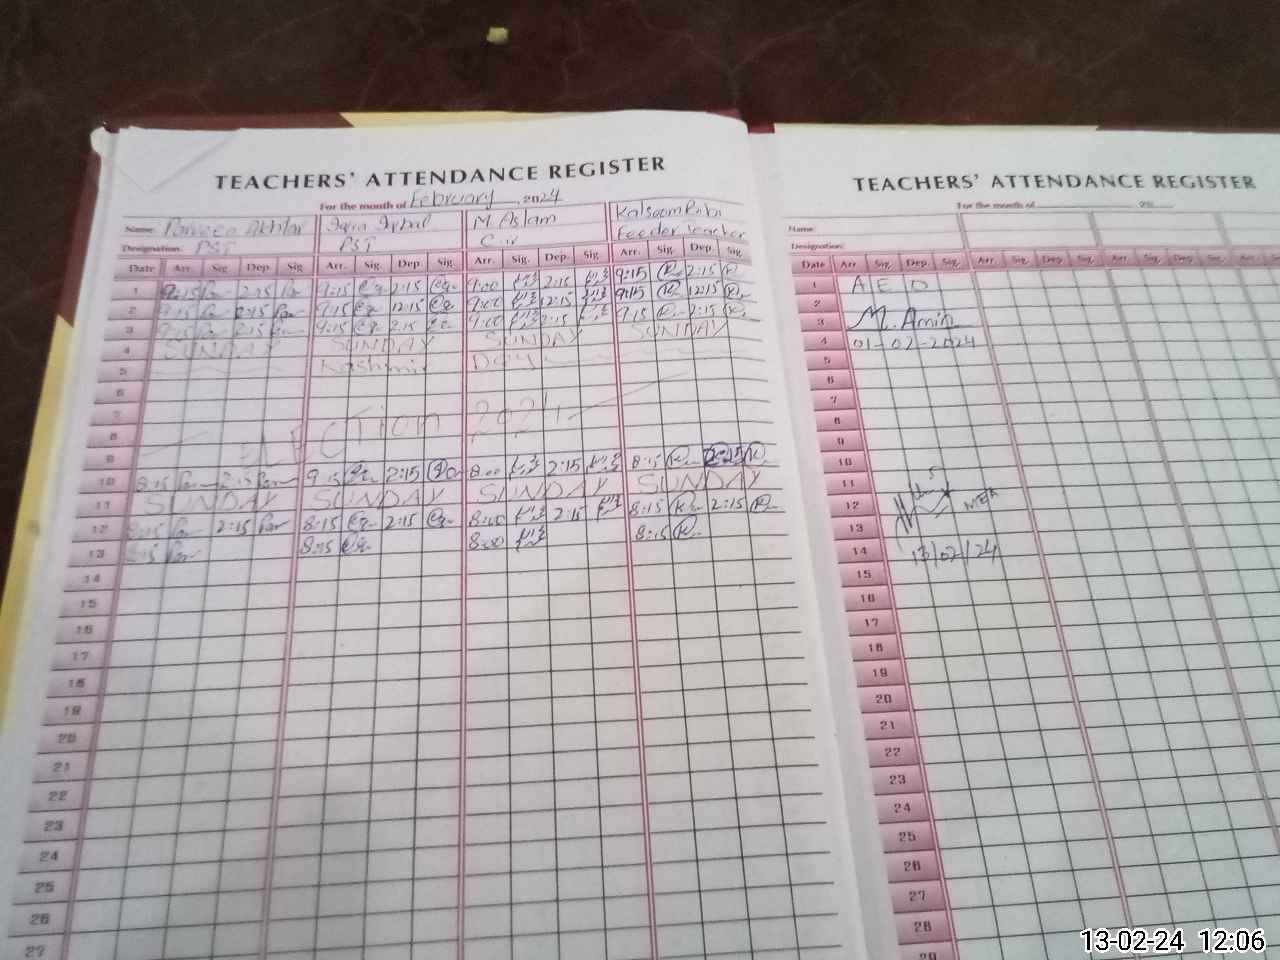 TEACHERS' ATTENDANCE REGISTER
For the month of February, 2024
Name: Parveen Akhtar Iqra Iqbal M. Aslam Kalsoom Bibi
Designation: PST PST C.iv Feeder teacher
Date Arr. Sig. Dep. Sig. Arr. Sig. Dep. Sig. Arr. Sig. Dep. Sig. Arr. Sig. Dep. Sig.
1 9:15 2:15 9:15 2:15 9:00 2:15 9:15 2:15
2 9:15 12:15 9:15 12:15 9:00 12:15 9:15 12:15
3 9:15 2:15 9:15 2:15 9:00 2:15 9:15 2:15
4 SUNDAY SUNDAY SUNDAY SUNDAY
5 Kashmir Day
6
7
8 ELECTION 2024
9
10 8:15 2:15 9:15 2:15 8:00 2:15 8:15 2:15
11 SUNDAY SUNDAY SUNDAY SUNDAY
12 8:15 2:15 8:15 2:15 8:00 2:15 8:15 2:15
13 8:15 8:15 8:00 8:15
14
15
16
17
18
19
20
21
22
23
24
25
26
27
TEACHERS' ATTENDANCE REGISTER
For the month of 20
Name:
Designation:
Date Arr. Sig. Dep. Sig. Arr. Sig. Dep. Sig. Arr. Sig. Dep. Sig.
1 A E O
2
3 M. Amin
4 01-02-2024
5
6
7
8
9
10
11
12 MEA
13
14 13/02/24
15
16
17
18
19
20
21
22
23
24
25
26
27
28
29
13-02-24 12:06